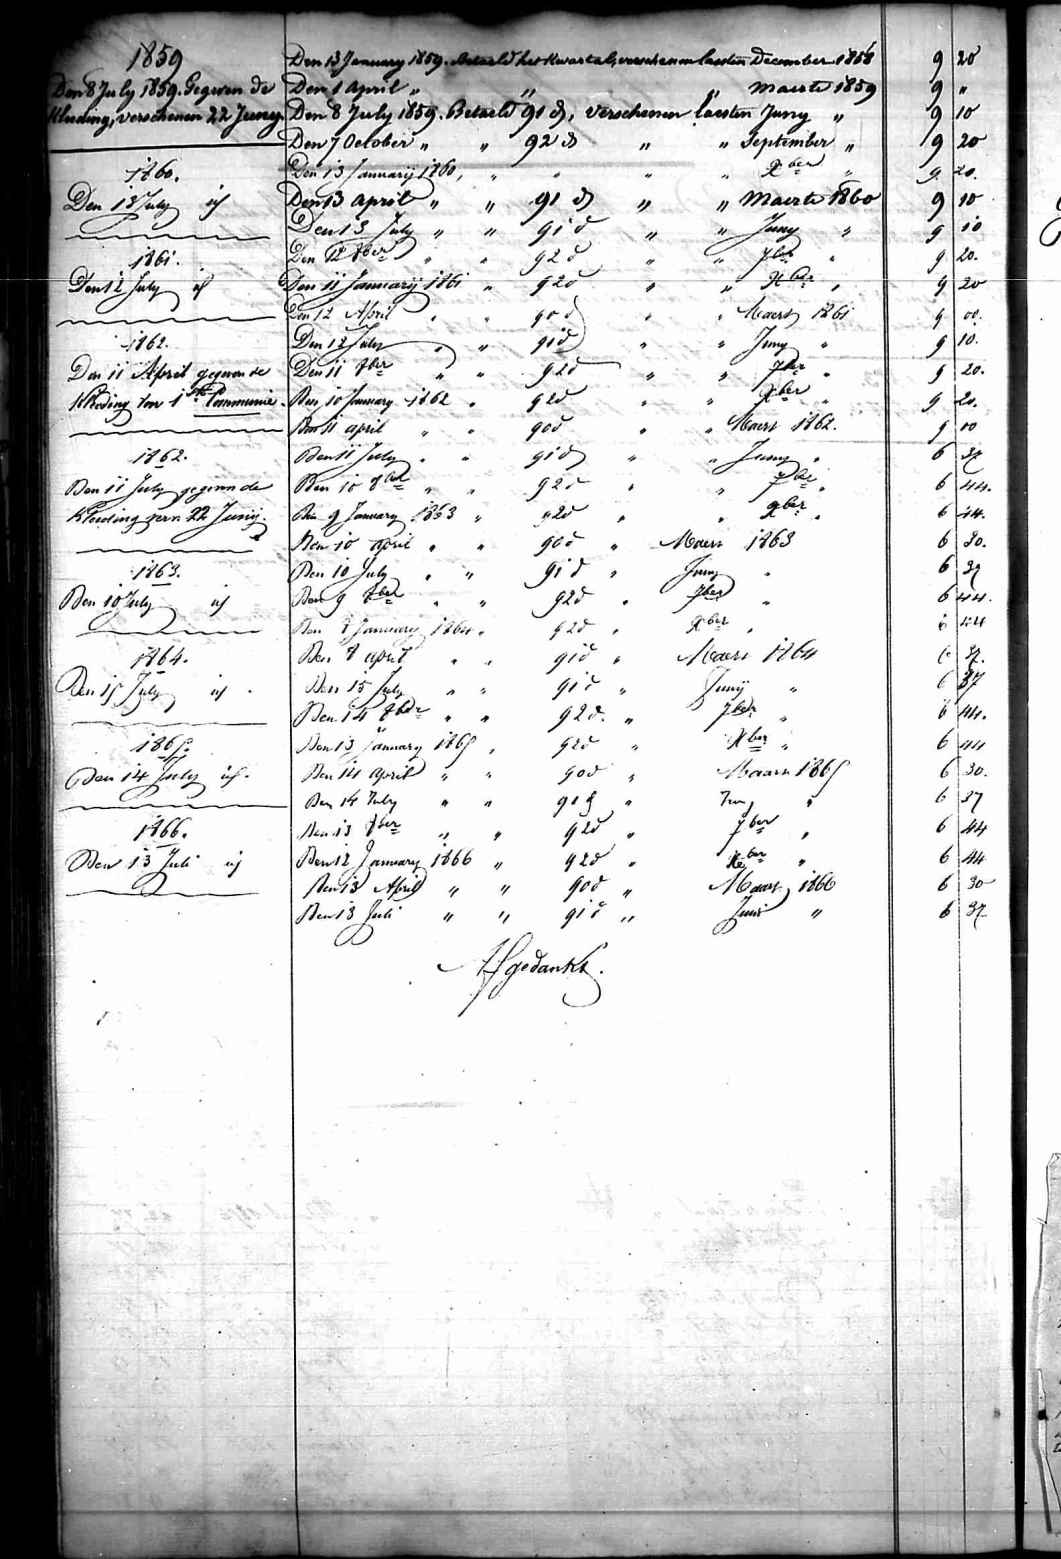 1859
Den 13 January 1859. Betaeld het Kwartal, verschenen laesten December 1858 9 20
Den 8 July 1859. Gegeven de
Den 1 April „ „ „ Maerte 1859 9 „
Kleeding, verschenen 22 Juny.
Den 8 July 1859. Betaeld 91 d, verschenen laesten Juny „ 9 10
Den 7 October „ „ 92 d „ „ September „ 9 20
1860.
Den 13 Januarij 1860, „ „ „ Xber „ 9 20.
Den 13 July id
Den 13 April „ „ 91 d „ „ Maerte 1860 9 10
Den 13 July „ „ 91 d „ „ Juny „ 9 10
1861.
Den 12 8ber „ „ 92 d „ „ 7ber „ 9 20.
Den 12 July id
Den 11 Januarij 1861 „ 92 d „ „ Xber „ 9 20
Den 12 April „ „ 90 d „ „ Maert 1861 9 00.
1862.
Den 12 July „ „ 91 d „ „ Juny „ 9 10.
Den 11 April gegeven de
Den 11 8ber „ „ 92 d „ „ 7ber „ 9 20.
Kleeding voor 1ste Communie.
Den 10 January 1862 „ 92 d „ „ Xber „ 9 20.
Den 11 april „ „ 90 d „ „ Maert 1862. 9 00
1862.
Den 11 July „ „ 91 d „ „ Juny „ 6 37
Den 11 July gegeven de
Den 10 8ber „ „ 92 d „ „ 7ber „ 6 44.
Kleeding vern 22 Junij
Den 9 January 1863 „ 92 d „ „ Xber „ 6 44.
Den 10 april „ „ 90 d „ Maert 1863 6 30.
1863.
Den 10 July „ „ 91 d „ Juny „ 6 37
Den 10 July id
Den 9 8ber „ „ 92 d „ 7ber „ 6 44.
Den 8 January 1864 „ 92 d „ Xber „ 6 44
1864.
Den 8 april „ „ 91 d „ Maert 1864 6 37.
Den 15 July id.
Den 15 July „ „ 91 d „ Junij „ 6 37
Den 14 8ber „ „ 92 d. „ 7ber „ 6 44.
1865.
Den 13 January 1865 „ 92 d „ Xber „ 6 44
Den 14 July id.
Den 14 april „ „ 90 d „ Maart 1865 6 30.
Den 14 July „ „ 91 d „ Juny „ 6 37
1866.
Den 13 8ber „ „ 92 d „ 7ber „ 6 44
Den 13 Juli id
Den 12 January 1866 „ 92 d „ Xber „ 6 44
Den 13 April „ „ 90 d „ Maart 1866 6 30
Den 13 Juli „ „ 91 d „ Juni „ 6 37
Afgedankt.